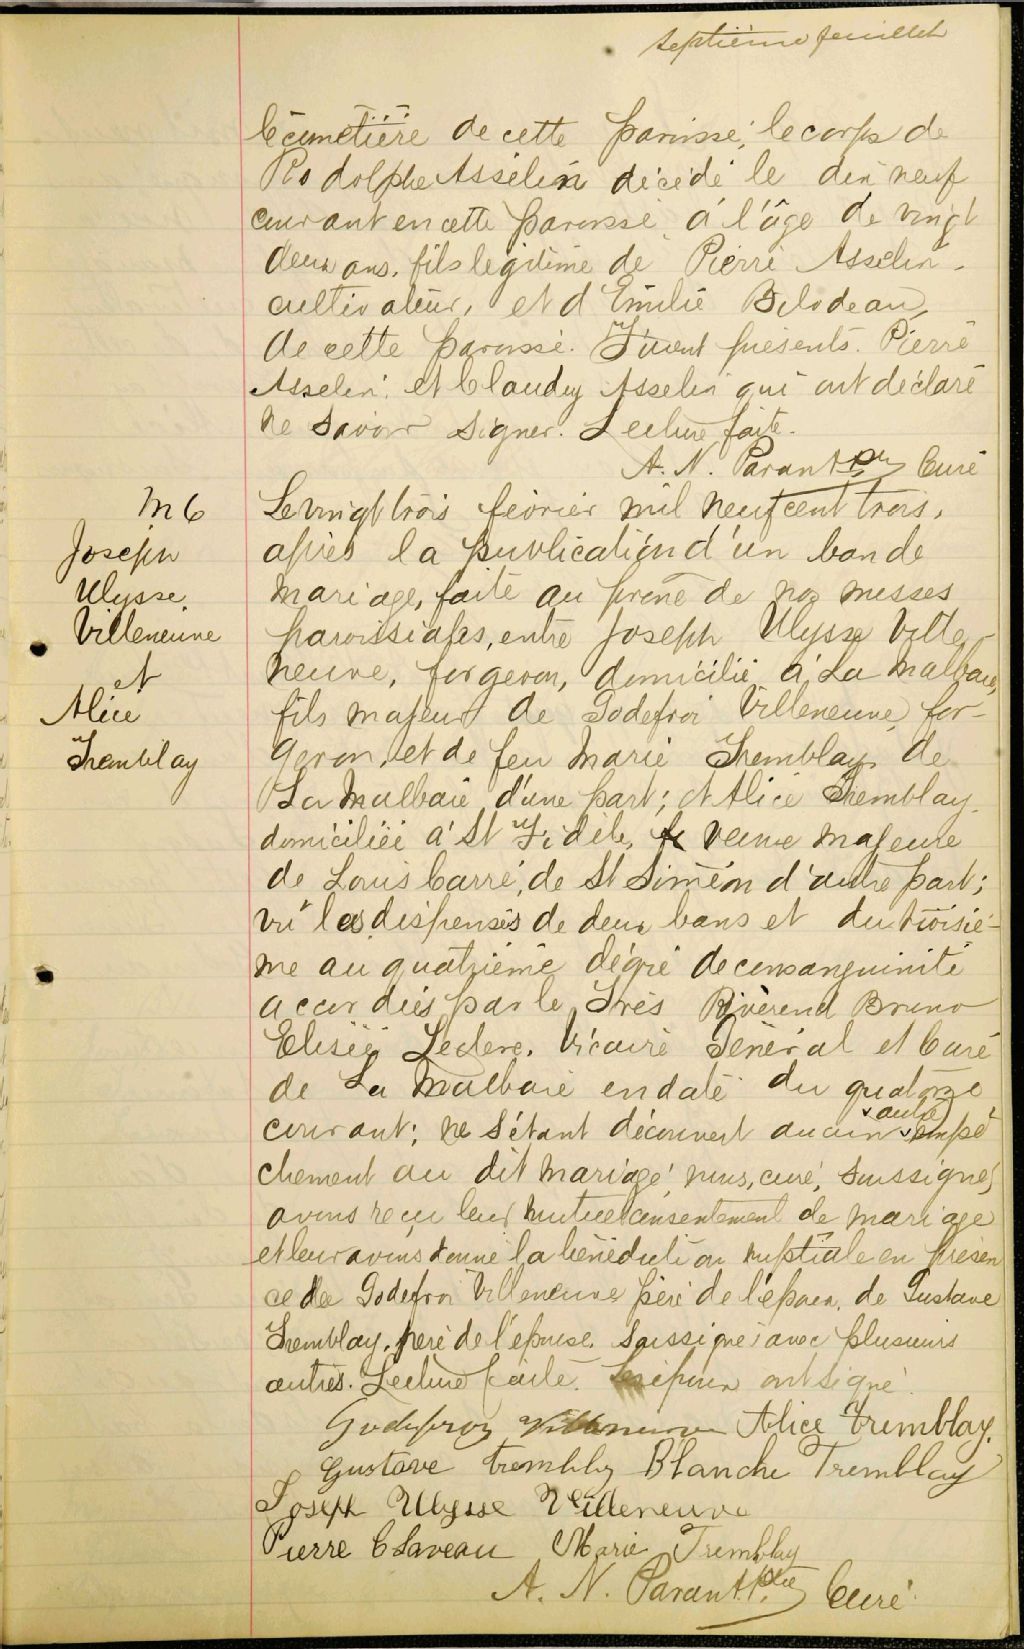 Septième feuillet
le cimetière de cette paroisse, le corps de
Rodolphe Asselin décédé le dix neuf
courant en cette paroisse, à l'âge de vingt
deux ans, fils légitime de Pierre Asselin,
cultivateur, et d'Emilie Bilodeau,
de cette paroisse. Furent présents. Pierre
Asselin, et Claudey Asselin qui ont déclaré
ne savoir signer. Lecture faite.
A. N. Parant Ptre Curé
M 6
Joseph
Ulysse
Villeneuve
et
Alice
Tremblay
Le vingt trois février mil neuf cent trois,
après la publication d'un ban de
mariage, faite au prône de nos messes
paroissiales, entre Joseph Ulysse Ville
neuve, forgeron, domicilié à La Malbaie,
fils majeur de Godefroi Villeneuve, for-
geron, et de feu Marie Tremblay, de
La Malbaie, d'une part; et Alice Tremblay,
domiciliée à St Fidèle, veuve majeure
de Louis Carré, de St Siméon d'autre part;
vu les dispenses de deux bans et du troisiè-
me au quatrième dégré de consanguinité
accordées par le Très Révérend Bruno
Elisée Leclerc, Vicaire Général et Curé
de La Malbaie en date du quatorze
courant; ne s'étant découvert aucun autre empê
chement au dit mariage, nous, curé, soussigné,
avons reçu leur mutuel consentement de mariage
et leur avons donné la bénédiction nuptiale en présen
ce de Godefroi Villeneuve père de l'époux, de Gustave
Tremblay, père de l'épouse, soussignés avec plusieurs
autres. Lecture faite. Les époux ont signé.
Godefroy Villeneuve Alice Tremblay.
Gustave Trembley Blanche Tremblay
Joseph Ulysse Villeneuve
Pierre Claveau Marie Tremblay
A. N. Parant Ptre Curé